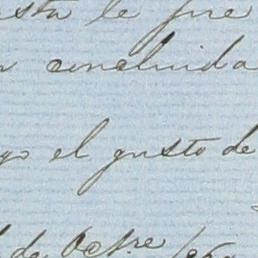 sta le fue
concluida
go el gusto de
de Octre